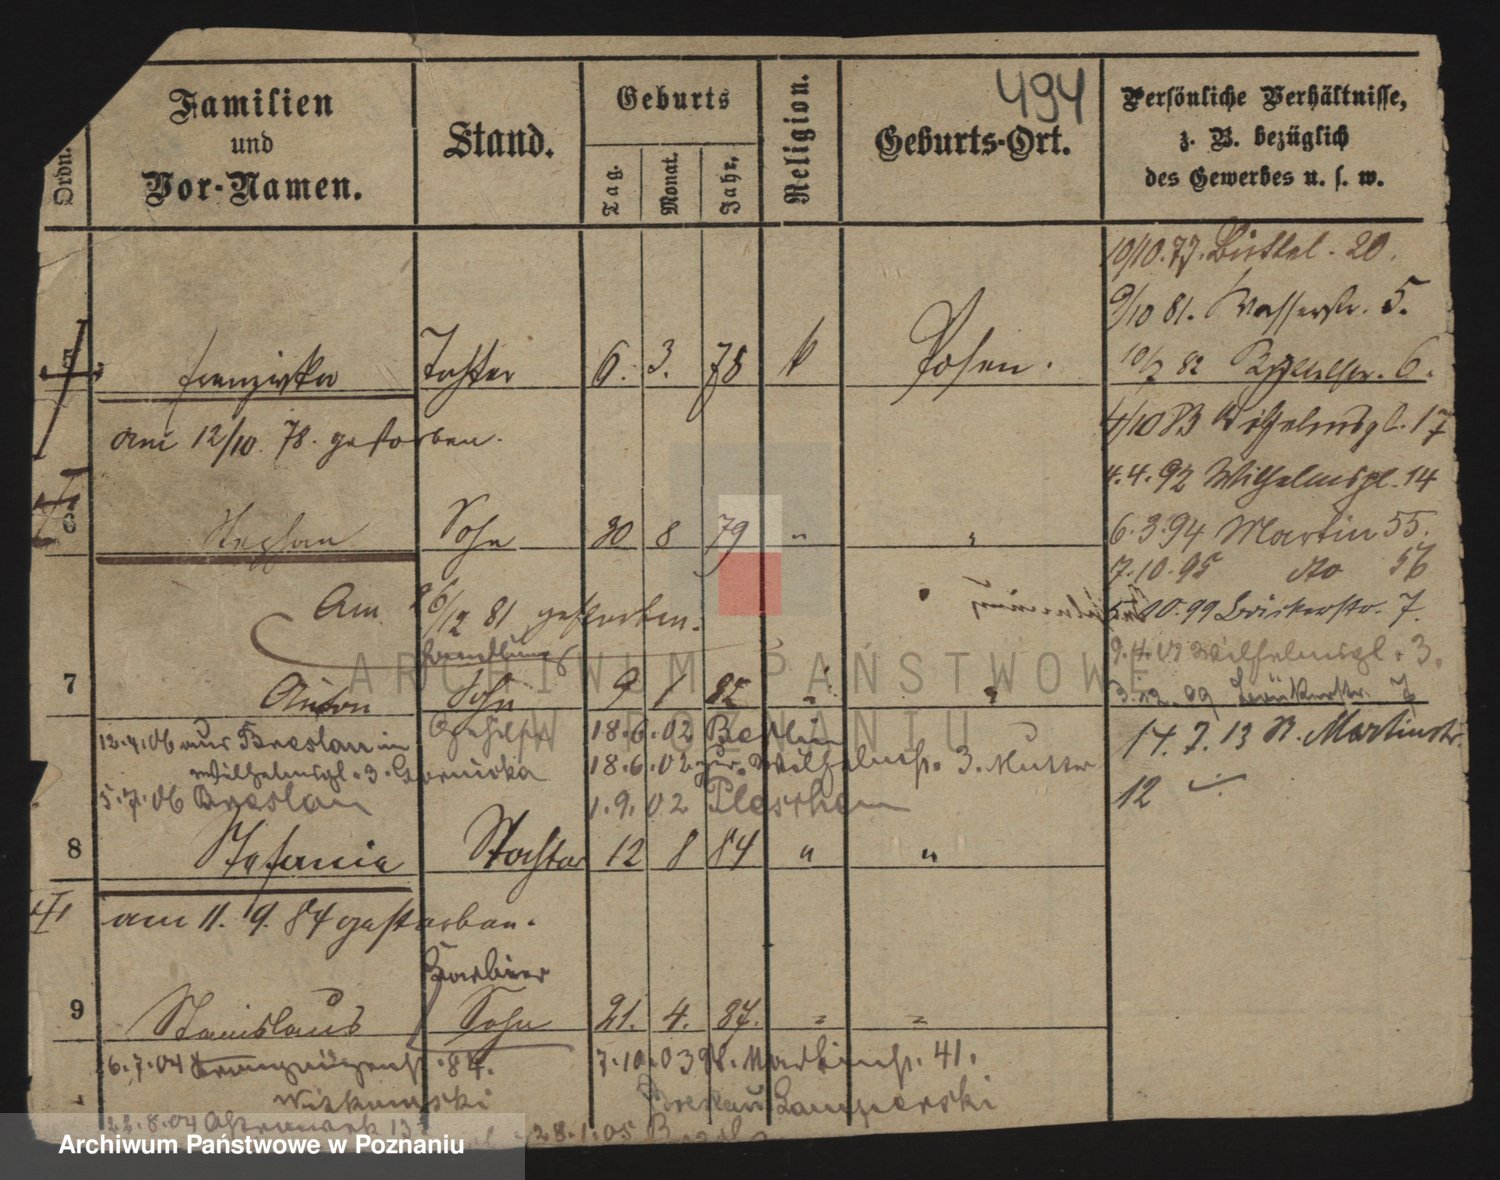 494
Ordn.
Familien
und
Vor-Namen.
Stand.
Geburts
Tag.
Monat.
Jahr.
Religion.
Geburts-Ort.
Persönliche Verhältnisse,
z. B. bezüglich
des Gewerbes u. s. w.
10/10. 77. 20.
9/10 81. Wasserstr. 5.
5 Franziska Tochter 6. 3. 78 k Posen.
82 6.
am 12/10. 78. gestorben.
4/10 83 Wilhelmspl. 17
4.4.92 Wilhelmspl. 14
6 Stephan Sohn 30 8 79 " "
6.3.94 Martin 55.
7.10.95 do 56
Am 26/12 81 gestorben.
10.99 7.
9.4.01 Wilhelmspl. 3.
Handlungs
7 Anton Sohn 9 1 82 " "
3.12.09 7
Gehilfe
12.4.06 aus Breslau in
18.6.02 Berlin
14.7.13 St. Martinstr.
12
Wilhelmspl. 3.
18.6.02 zur. Wilhelmspl. 3. Mutter
5.7.06 Breslau
1.9.02 Pleschen
8 Stefania Tochter 12 8 84 " "
am 11. 9. 84 gestorben.
Barbier
9 Stanislaus Sohn 21. 4. 87. " "
6.7.04 84.
7.10.03 St. Martinstr. 41.
Witkowski
Breslau
22.8.04 13
28.1.05
ARCHIWUM PAŃSTWOWE
W POZNANIU
Archiwum Państwowe w Poznaniu